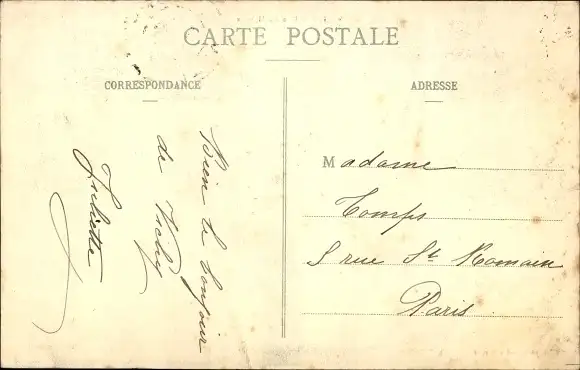 CARTE POSTALE
CORRESPONDANCE
ADRESSE
Bien le bonjour
de Vichy
Juliette
Madame
Tomps
8 rue St Romain
Paris